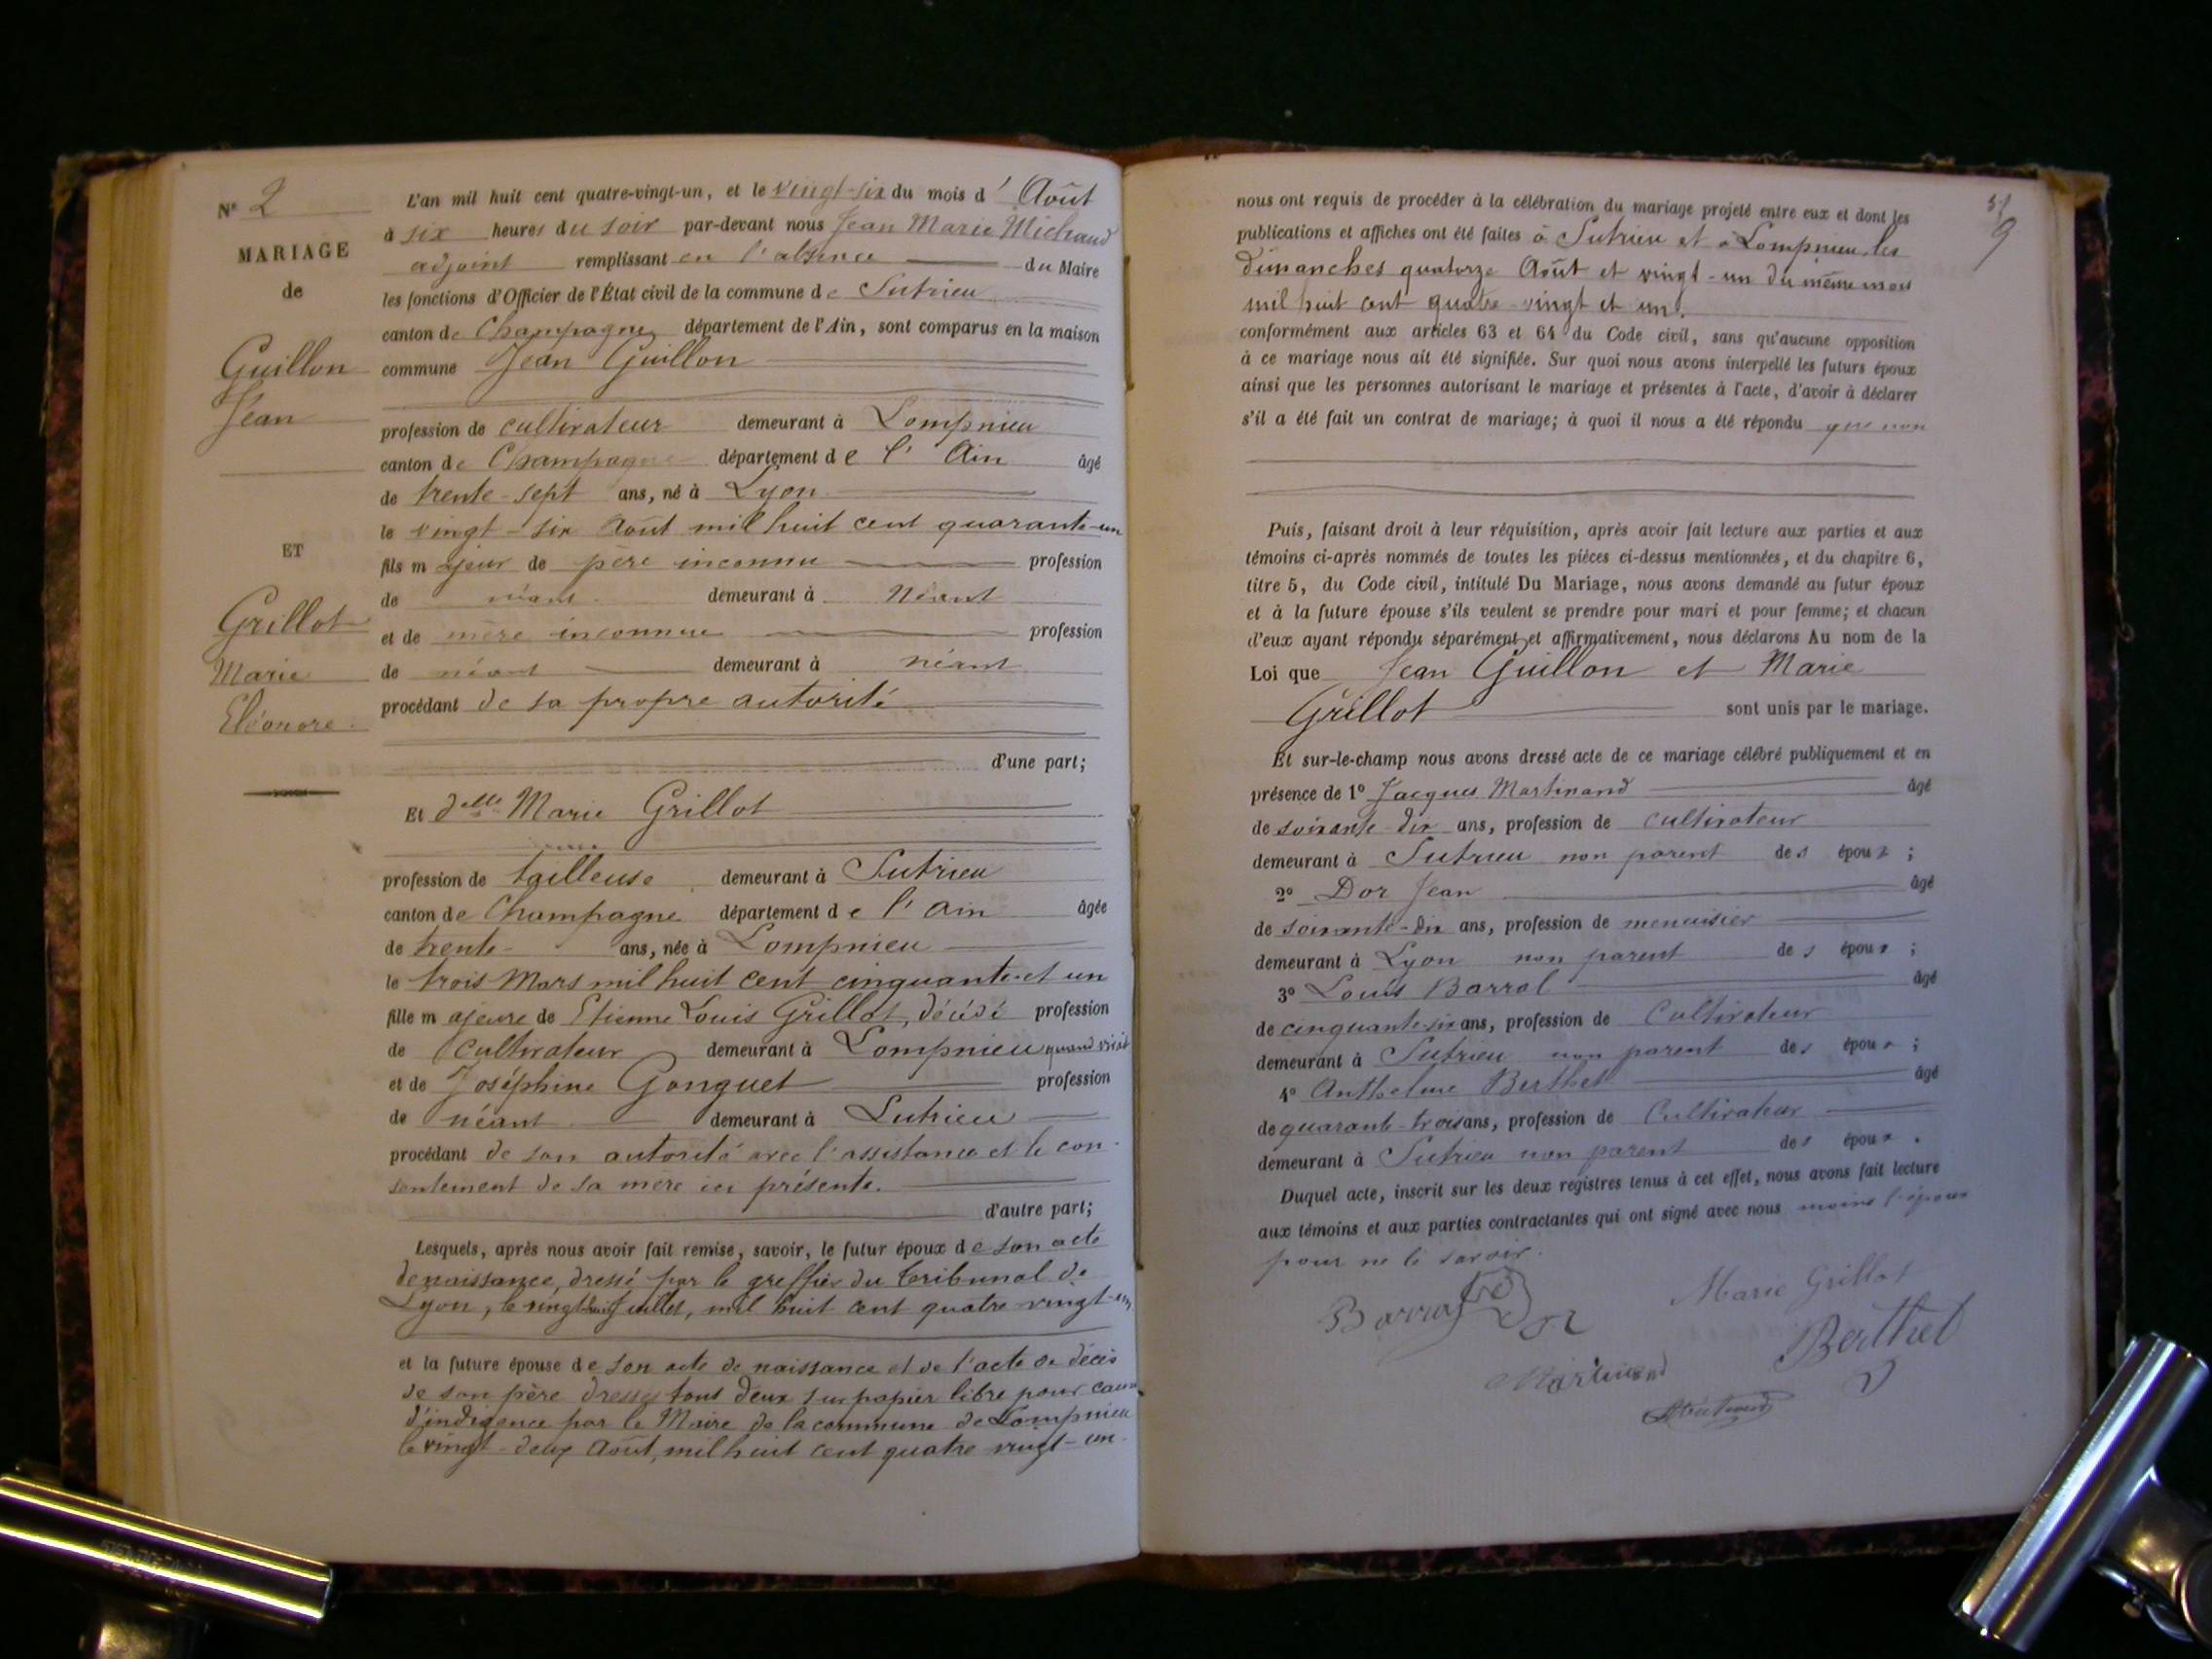 Nº 2
MARIAGE
de
Guillon
Jean
ET
Grillot
Marie
Eléonore
L'an mil huit cent quatre-vingt-un, et le vingt-six du mois d' Août
à six heures du soir par-devant nous Jean Marie Michaud
adjoint remplissant en l'absence du Maire
les fonctions d'Officier de l'État civil de la commune de Sutrieu
canton de Champagne département de l'Ain, sont comparus en la maison
commune Jean Guillon
profession de cultivateur demeurant à Lompnieu
canton de Champagne département de l' Ain âgé
de trente-sept ans, né à Lyon
le vingt-six Août mil huit cent quarante-un
fils majeur de père inconnu profession
de néant demeurant à Néant
et de mère inconnue profession
de néant demeurant à néant
procédant de sa propre autorité
d'une part;
Et delle Marie Grillot
profession de tailleuse demeurant à Sutrieu
canton de Champagne département de l' Ain âgée
de trente ans, née à Lompnieu
le trois Mars mil huit cent cinquante et un
fille majeure de Etienne Louis Grillot, décédé profession
de Cultivateur demeurant à Lompnieu quand vivait
et de Joséphine Gonguet profession
de néant demeurant à Sutrieu
procédant de son autorité avec l'assistance et le con-
sentement de sa mère ici présente.
d'autre part;
Lesquels, après nous avoir fait remise, savoir, le futur époux de son acte
de naissance, dressé par le greffier du tribunal de
Lyon, le vingt huit Juillet, mil huit cent quatre-vingt-un
et la future épouse de son acte de naissance et de l'acte de décès
de son père dressés tous deux sur papier libre pour cause
d'indigence par le Maire de la commune de Lompnieu
le vingt-deux Août, mil huit cent quatre vingt-un.
9
nous ont requis de procéder à la célébration du mariage projeté entre eux et dont les
publications et affiches ont été faites à Sutrieu et à Lompnieu les
dimanches quatorze Août et vingt-un du même mois
mil huit cent quatre-vingt et un.
conformément aux articles 63 et 64 du Code civil, sans qu'aucune opposition
à ce mariage nous ait été signifiée. Sur quoi nous avons interpellé les futurs époux
ainsi que les personnes autorisant le mariage et présentes à l'acte, d'avoir à déclarer
s'il a été fait un contrat de mariage; à quoi il nous a été répondu que non
Puis, faisant droit à leur réquisition, après avoir fait lecture aux parties et aux
témoins ci-après nommés de toutes les pièces ci-dessus mentionnées, et du chapitre 6,
titre 5, du Code civil, intitulé Du Mariage, nous avons demandé au futur époux
et à la future épouse s'ils veulent se prendre pour mari et pour femme; et chacun
d'eux ayant répondu séparément et affirmativement, nous déclarons Au nom de la
Loi que Jean Guillon et Marie
Grillot sont unis par le mariage.
Et sur-le-champ nous avons dressé acte de ce mariage célébré publiquement et en
présence de 1º Jacques Martinand âgé
de soixante-dix ans, profession de cultivateur
demeurant à Sutrieu non parent des époux ;
2º Dor Jean âgé
de soixante-dix ans, profession de menuisier
demeurant à Lyon non parent des époux ;
3º Louis Barral âgé
de cinquante-six ans, profession de Cultivateur
demeurant à Sutrieu non parent des époux ;
4º Anthelme Berthet âgé
de quarante-trois ans, profession de Cultivateur
demeurant à Sutrieu non parent des époux .
Duquel acte, inscrit sur les deux registres tenus à cet effet, nous avons fait lecture
aux témoins et aux parties contractantes qui ont signé avec nous moins l'époux
pour ne le savoir.
Marie Grillot
Barral
Berthet
Martinand